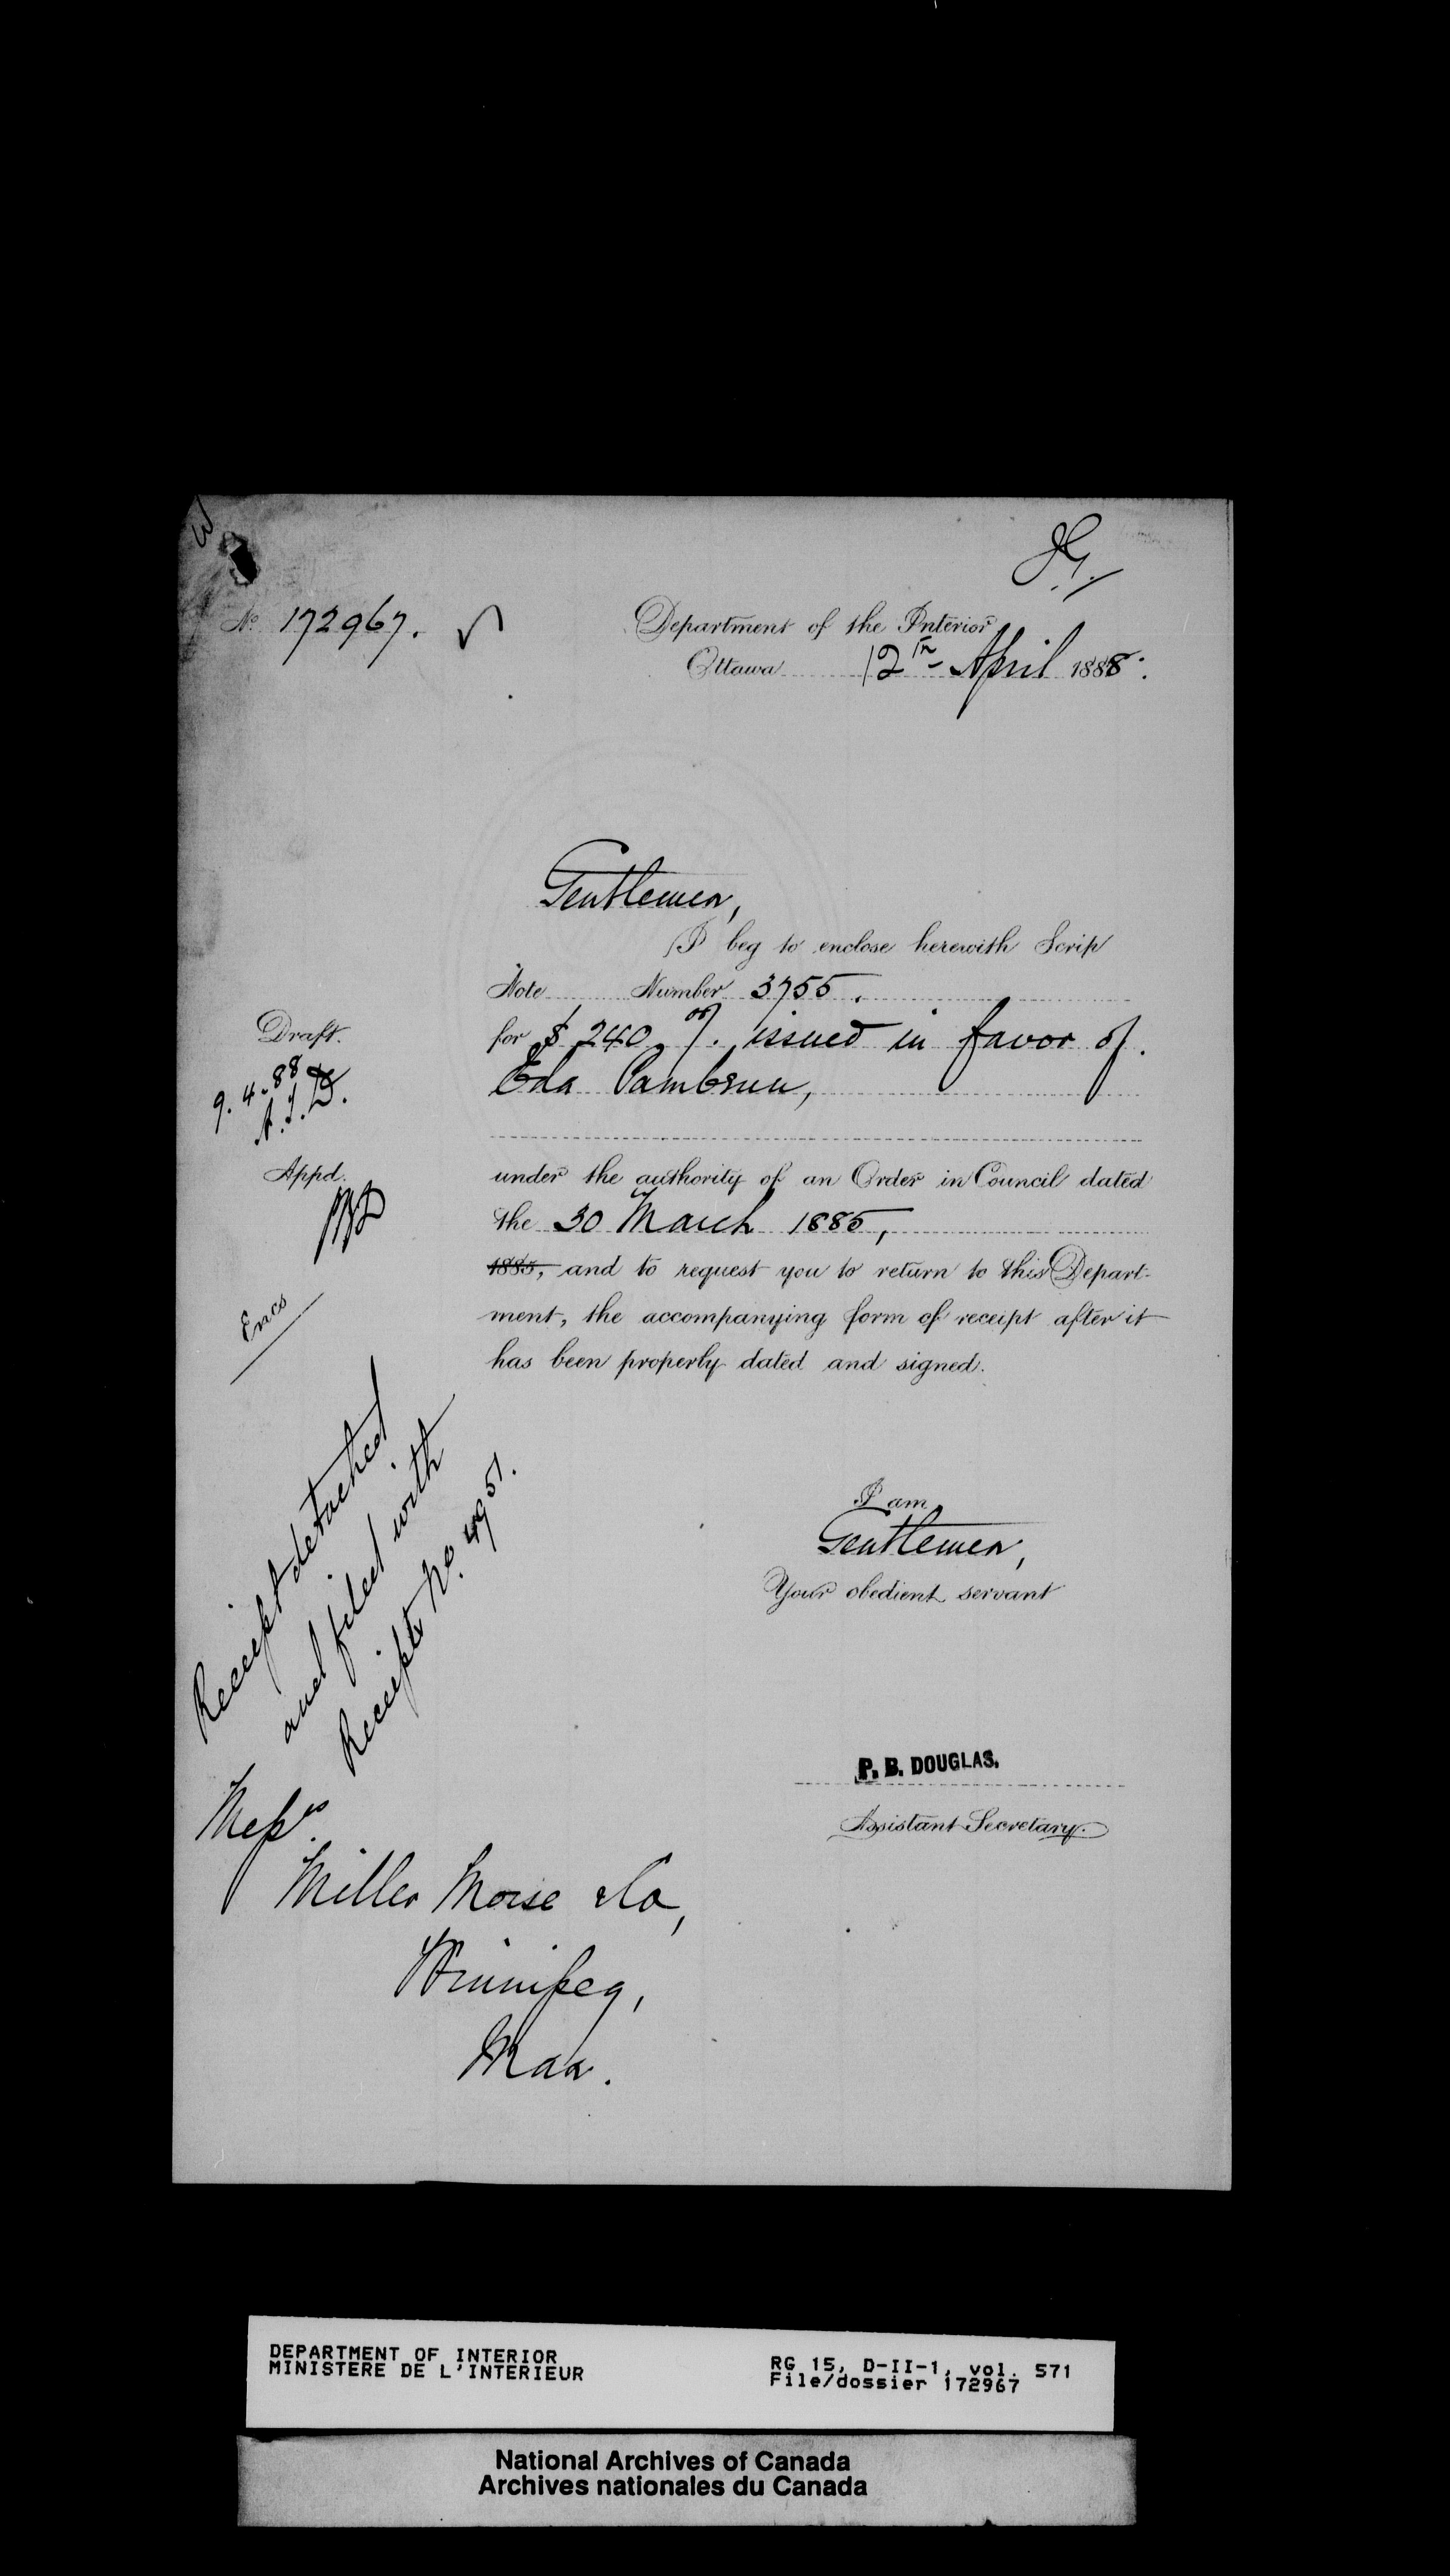 No 172967.
Department of the Interior
Ottawa 12th April 1888.
Gentlemen,
I beg to enclose herewith Scrip
Note Number 3755.
for $ 240 00/. issued in favor of
Eda Pambrun,
under the authority of an Order in Council dated
the 30 March 1885,
1885, and to request you to return to this Depart-
ment, the accompanying form of receipt after it
has been properly dated and signed.
Draft.
9.4.88
Appd.
Encs
I am
Gentlemen,
Your obedient servant
Receipt detached
and filed with
Receipts No. 4951.
P. B. DOUGLAS.
Assistant Secretary.
Messrs.
Miller Morse & Co,
Winnipeg,
Man.
DEPARTMENT OF INTERIOR
MINISTERE DE L'INTERIEUR
RG 15, D-II-1, vol. 571
File/dossier 172967
National Archives of Canada
Archives nationales du Canada